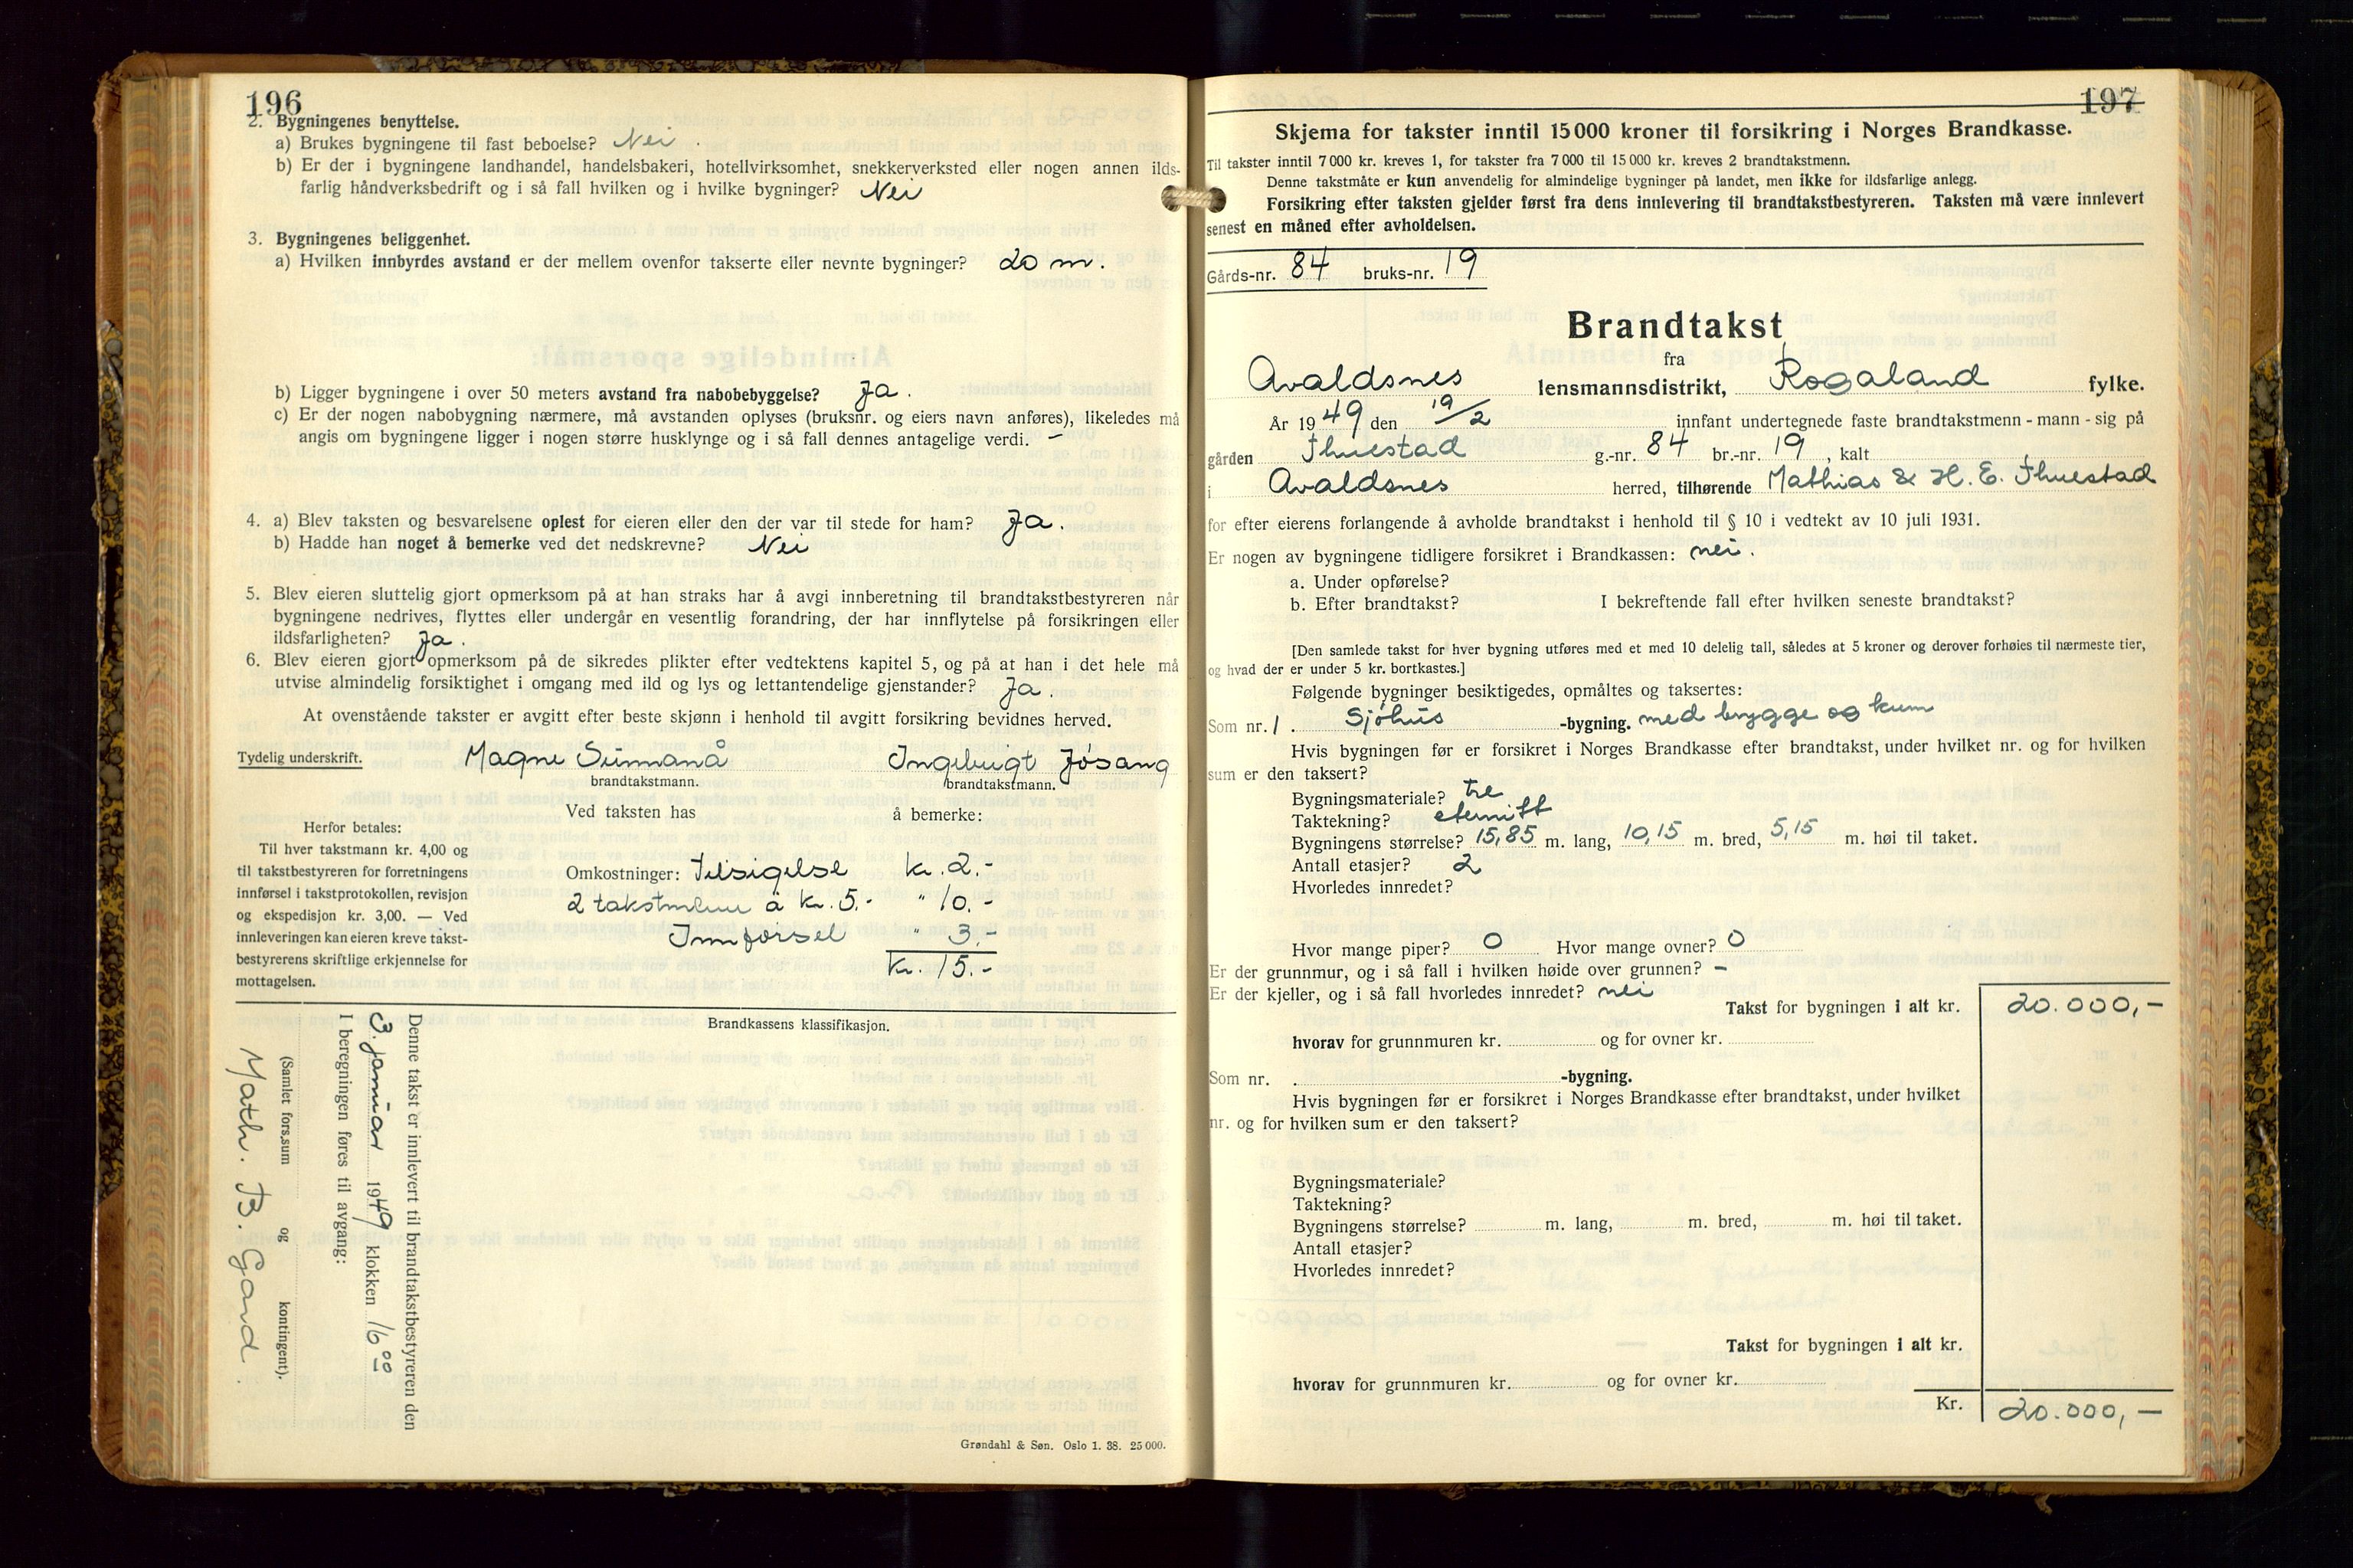 196
2. Bygningenes benyttelse.
a) Brukes bygningene til fast beboelse? Nei.
b) Er der i bygningene landhandel, handelsbakeri, hotellvirksomhet, snekkerverksted eller nogen annen ilds-
farlig håndverksbedrift og i så fall hvilken og i hvilke bygninger? Nei
3. Bygningenes beliggenhet.
a) Hvilken innbyrdes avstand er der mellem ovenfor takserte eller nevnte bygninger? 20 m.
b) Ligger bygningene i over 50 meters avstand fra nabobebyggelse? Ja.
c) Er der nogen nabobygning nærmere, må avstanden oplyses (bruksnr. og eiers navn anføres), likeledes må
angis om bygningene ligger i nogen større husklynge og i så fall dennes antagelige verdi. —
4. a) Blev taksten og besvarelsene oplest for eieren eller den der var til stede for ham? Ja.
b) Hadde han noget å bemerke ved det nedskrevne? Nei
5. Blev eieren sluttelig gjort opmerksom på at han straks har å avgi innberetning til brandtakstbestyreren når
bygningene nedrives, flyttes eller undergår en vesentlig forandring, der har innflytelse på forsikringen eller
ildsfarligheten? Ja.
6. Blev eieren gjort opmerksom på de sikredes plikter efter vedtektens kapitel 5, og på at han i det hele må
utvise almindelig forsiktighet i omgang med ild og lys og lettantendelige gjenstander? Ja.
At ovenstående takster er avgitt efter beste skjønn i henhold til avgitt forsikring bevidnes herved.
Tydelig underskrift. Magne Sunnanå Ingebrigt Jøsang
brandtakstmann. brandtakstmann.
Ved taksten has å bemerke:
Herfor betales:
Til hver takstmann kr. 4,00 og
til takstbestyreren for forretningens
innførsel i takstprotokollen, revisjon
og ekspedisjon kr. 3,00. — Ved
innleveringen kan eieren kreve takst-
bestyrerens skriftlige erkjennelse for
mottagelsen.
Omkostninger: Tilsigelse kr. 2.-
2 takstmenn à kr. 5.- " 10.-
Innførsel " 3.-
Kr. 15.-
Brandkassens klassifikasjon.
Denne takst er innlevert til brandtakstbestyreren den
3. januar 1949 klokken 16 00
I beregningen føres til avgang:
(Samlet fors.sum og kontingent).
Math. B. Gard.
Grøndahl & Søn. Oslo 1. 38. 25 000.
197
Skjema for takster inntil 15 000 kroner til forsikring i Norges Brandkasse.
Til takster inntil 7 000 kr. kreves 1, for takster fra 7 000 til 15 000 kr. kreves 2 brandtakstmenn.
Denne takstmåte er kun anvendelig for almindelige bygninger på landet, men ikke for ildsfarlige anlegg.
Forsikring efter taksten gjelder først fra dens innlevering til brandtakstbestyreren. Taksten må være innlevert
senest en måned efter avholdelsen.
Gårds-nr. 84 bruks-nr. 19
Brandtakst
fra
Avaldsnes lensmannsdistrikt, Rogaland fylke.
År 1949 den 19/2 innfant undertegnede faste brandtakstmenn - mann - sig på
gården Thuestad g.-nr. 84 br.-nr. 19, kalt
i Avaldsnes herred, tilhørende Mathias & H. E. Thuestad
for efter eierens forlangende å avholde brandtakst i henhold til § 10 i vedtekt av 10 juli 1931.
Er nogen av bygningene tidligere forsikret i Brandkassen: nei.
a. Under opførelse?
b. Efter brandtakst? I bekreftende fall efter hvilken seneste brandtakst?
[Den samlede takst for hver bygning utføres med et med 10 delelig tall, således at 5 kroner og derover forhøies til nærmeste tier,
og hvad der er under 5 kr. bortkastes.]
Følgende bygninger besiktigedes, opmåltes og taksertes:
Som nr. 1. Sjøhus -bygning. med brygge og kum
Hvis bygningen før er forsikret i Norges Brandkasse efter brandtakst, under hvilket nr. og for hvilken
sum er den taksert?
Bygningsmateriale? tre
Taktekning? eternitt
Bygningens størrelse? 15,85 m. lang, 10,15 m. bred, 5,15 m. høi til taket.
Antall etasjer? 2
Hvorledes innredet?
Hvor mange piper? 0 Hvor mange ovner? 0
Er der grunnmur, og i så fall i hvilken høide over grunnen? —
Er der kjeller, og i så fall hvorledes innredet? nei
Takst for bygningen i alt kr. 20.000,—
hvorav for grunnmuren kr. og for ovner kr.
Som nr. . -bygning.
Hvis bygningen før er forsikret i Norges Brandkasse efter brandtakst, under hvilket
nr. og for hvilken sum er den taksert?
Bygningsmateriale?
Taktekning?
Bygningens størrelse? m. lang, m. bred, m. høi til taket.
Antall etasjer?
Hvorledes innredet?
Takst for bygningen i alt kr.
hvorav for grunnmuren kr. og for ovner kr.
Kr. 20.000,—